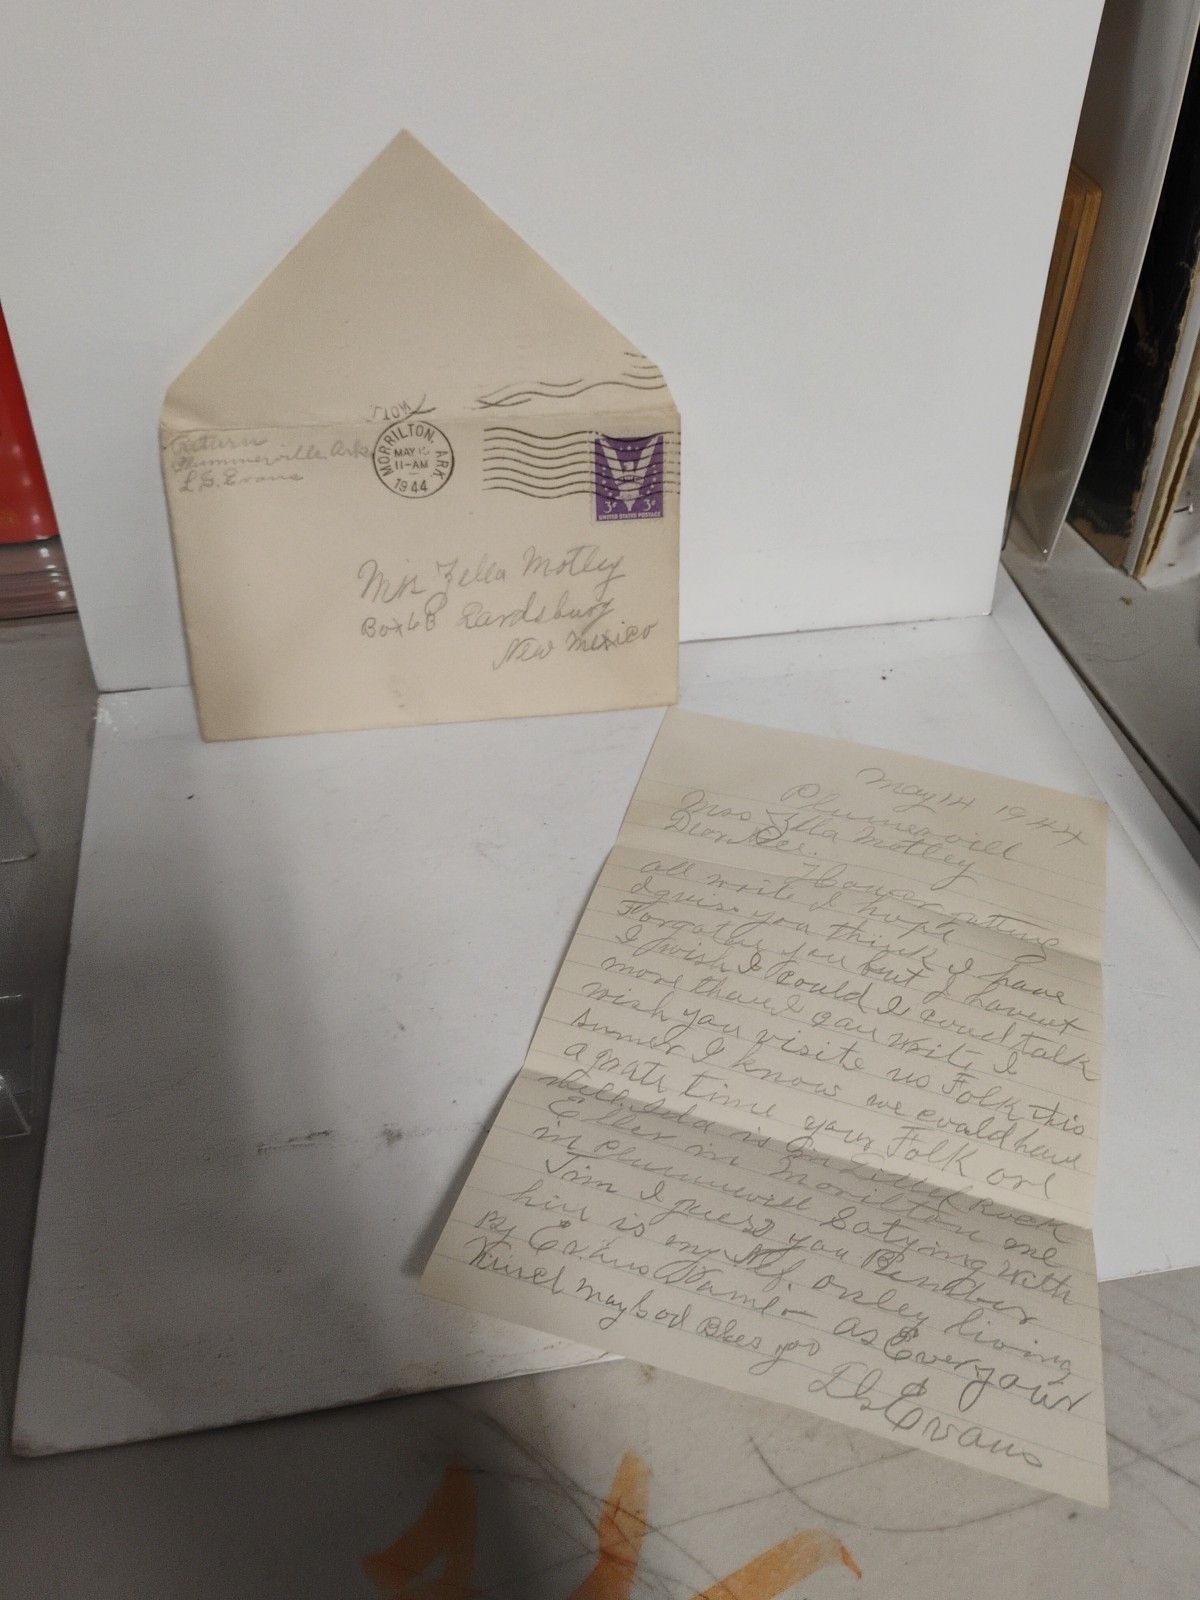 Return
Plummerville Ark
L.G. Evans
MORRILTON, ARK
MAY 15
11-AM
1944
3¢ 3¢
UNITED STATES POSTAGE
Zella Motley
Box 6B Lordsburg
New Mexico
May 14 1944
Plumervill
Mrs Zella Motley
Dear
all write I hope
I guis you think I have
Forgotten you but I havent
I wish I could I coud talk
more than I can write I
wish you visite us Folk this
sumer I know we could have
a grate time your Folk orl
is in Littel Rock
in Morilton me
in plumervill Satying with
Jim I guess you
him is my onley living
By Evans Name - as Ever your
Friend may God Bles you
LG Evans